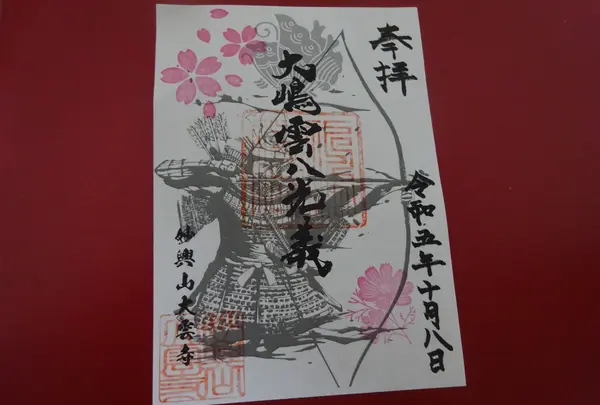 奉拝
令和五年十月八日
大嶋雲八光義
妙興山大雲寺